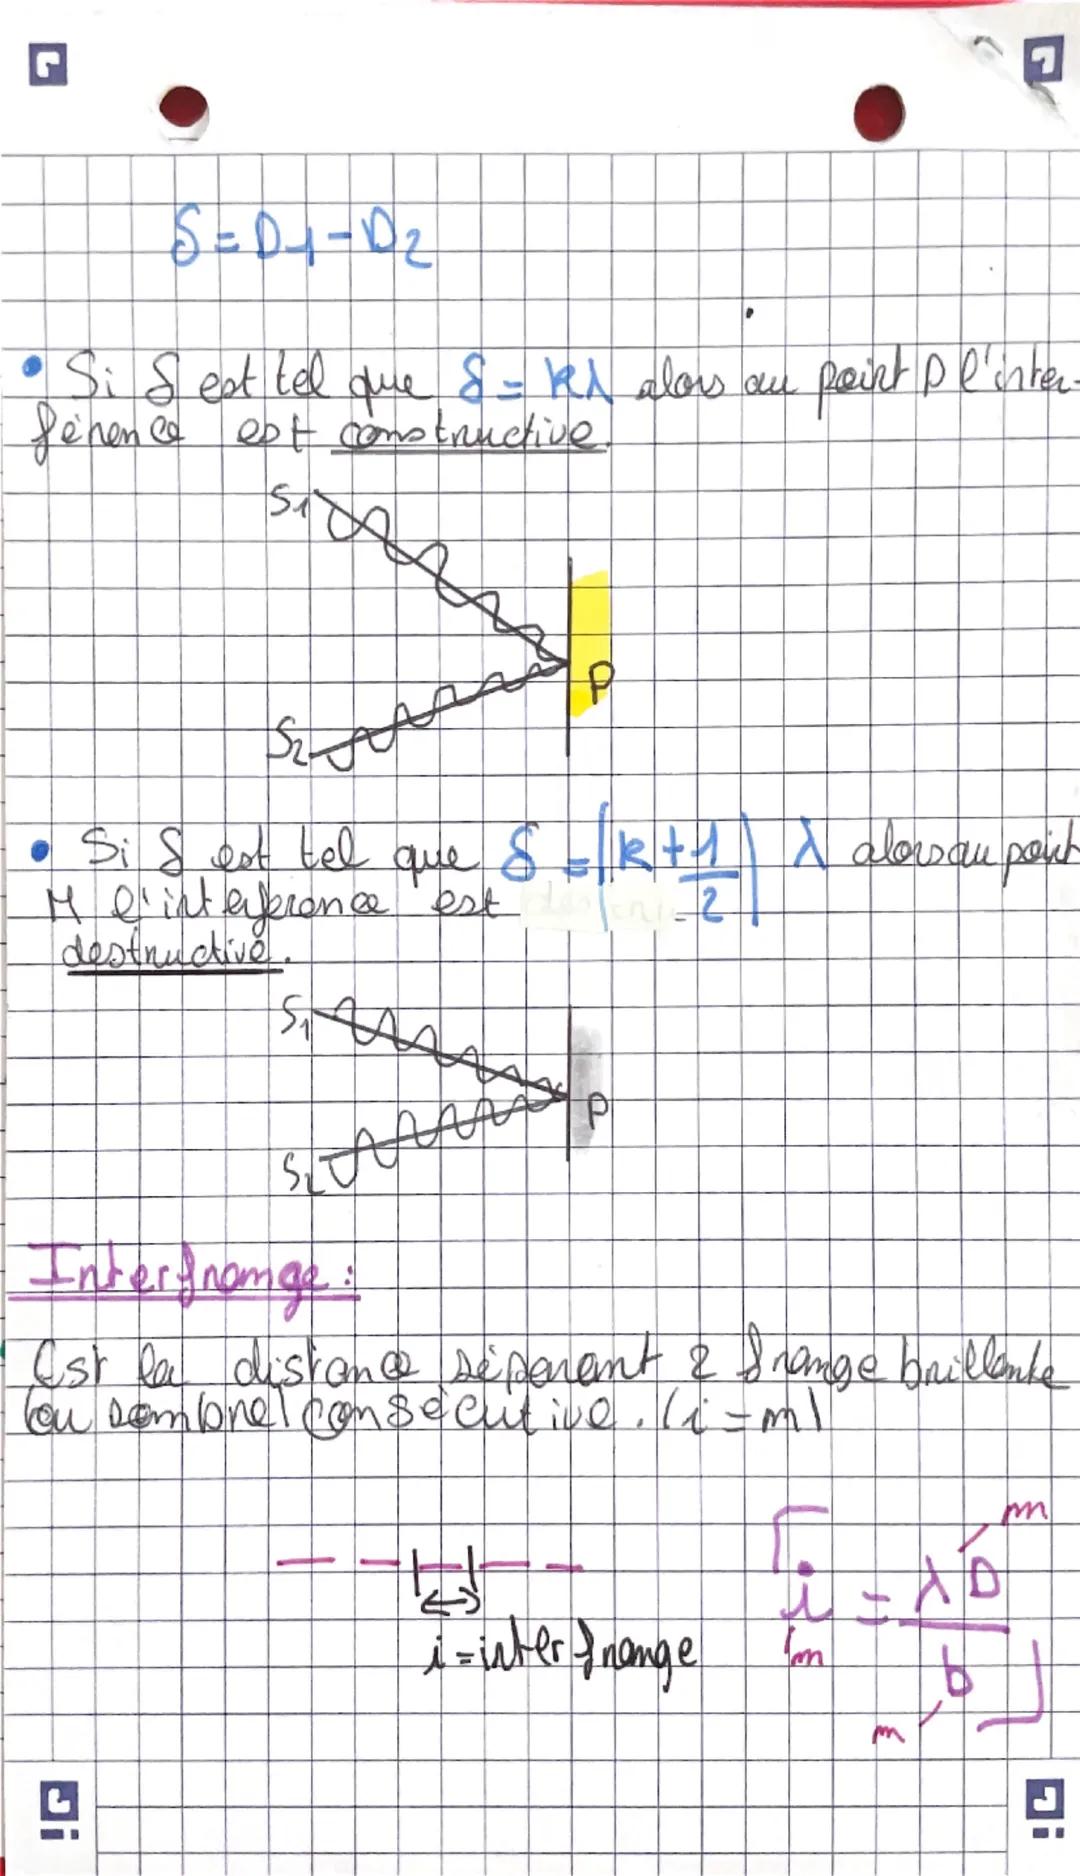 δ = D1 - D2
• Si δ est tel que δ = kλ alors au point P l'inter-
férence est constructive.
S1
P
S2
• Si δ est tel que δ = (k + 1/2) λ alors au point
M l'interference est
destructive.
S1
P
S2
Interfrange :
Est la distance séparant 2 frange brillante
(ou sombre) consécutive. (i = m)
i = interfrange
i = λD / b
m
m
m